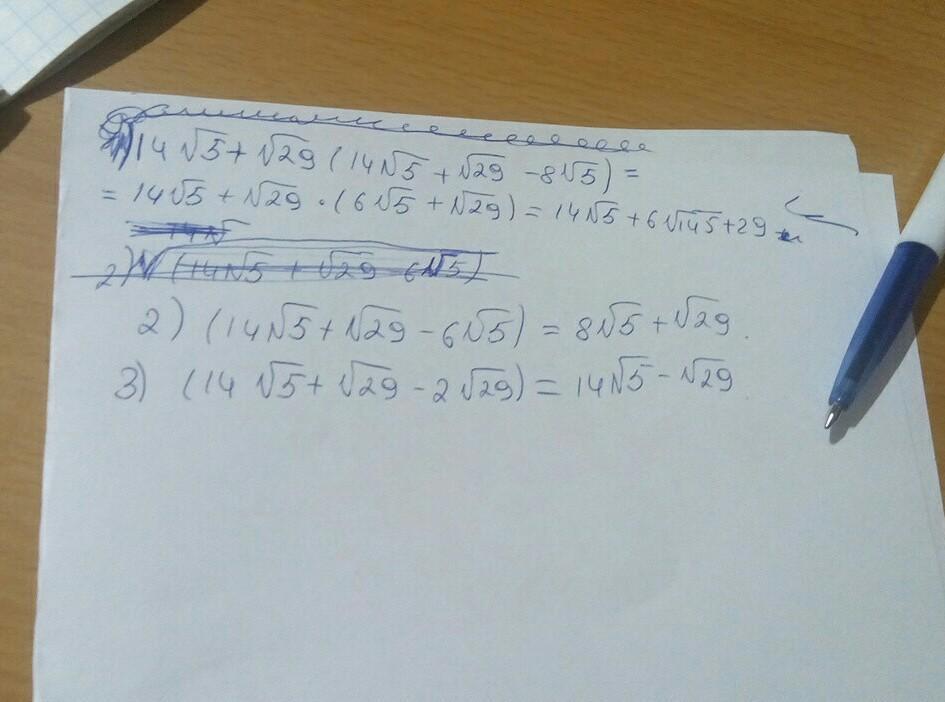 1) 14√5 + √29 (14√5 + √29 - 8√5) =
= 14√5 + √29 · (6√5 + √29) = 14√5 + 6√145 + 29
14√
2) √(14√5 + √29 - 6√5)
2) (14√5 + √29 - 6√5) = 8√5 + √29.
3) (14√5 + √29 - 2√29) = 14√5 - √29